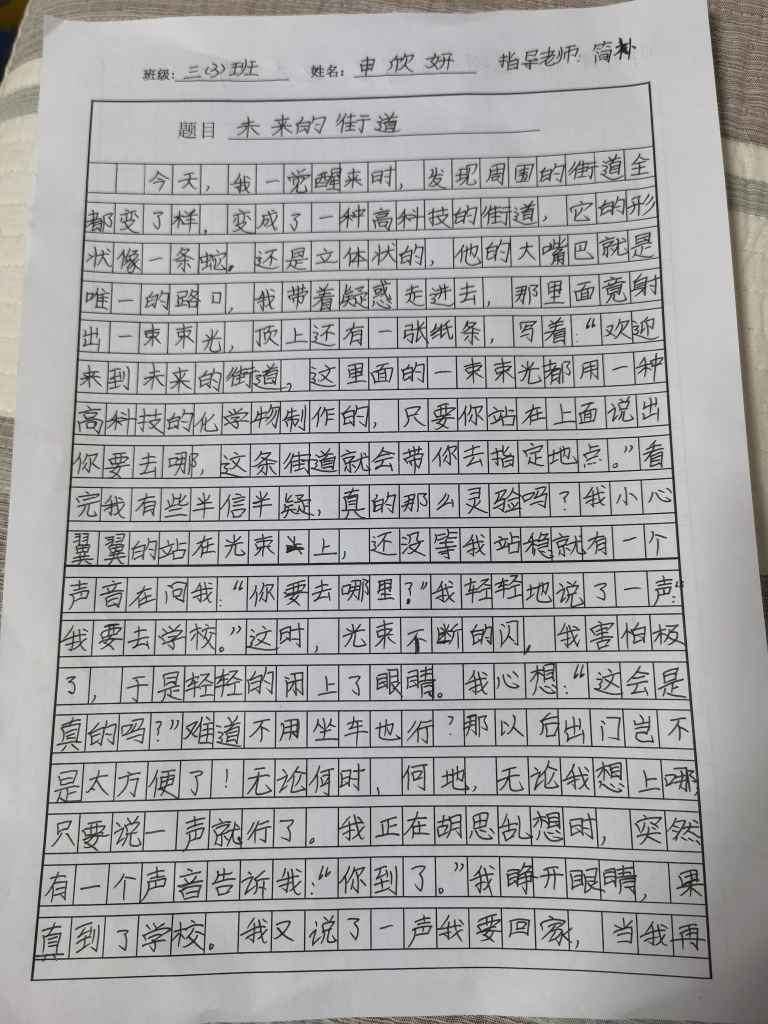 班级: 三(3)班 姓名: 申欣妍 指导老师: 简朴
题目 未来的街道
今天,我一觉醒来时,发现周围的街道全
都变了样,变成了一种高科技的街道,它的形
状像一条蛇。还是立体状的,他的大嘴巴就是
唯一的路口,我带着疑惑走进去,那里面竟射
出一束束光,顶上还有一张纸条,写着:“欢迎
来到未来的街道,这里面的一束束光都用一种
高科技的化学物制作的,只要你站在上面说出
你要去哪,这条街道就会带你去指定地点。”看
完我有些半信半疑,真的那么灵验吗?我小心
翼翼的站在光束上,还没等我站稳就有一个
声音在问我:“你要去哪里?”我轻轻地说了一声:“
我要去学校。”这时,光束不断的闪,我害怕极
了,于是轻轻的闭上了眼睛。我心想:“这会是
真的吗?”难道不用坐车也行?那以后出门岂不
是太方便了!无论何时,何地,无论我想上哪,
只要说一声就行了。我正在胡思乱想时,突然
有一个声音告诉我:“你到了。”我睁开眼睛,果
真到了学校。我又说了一声我要回家,当我再